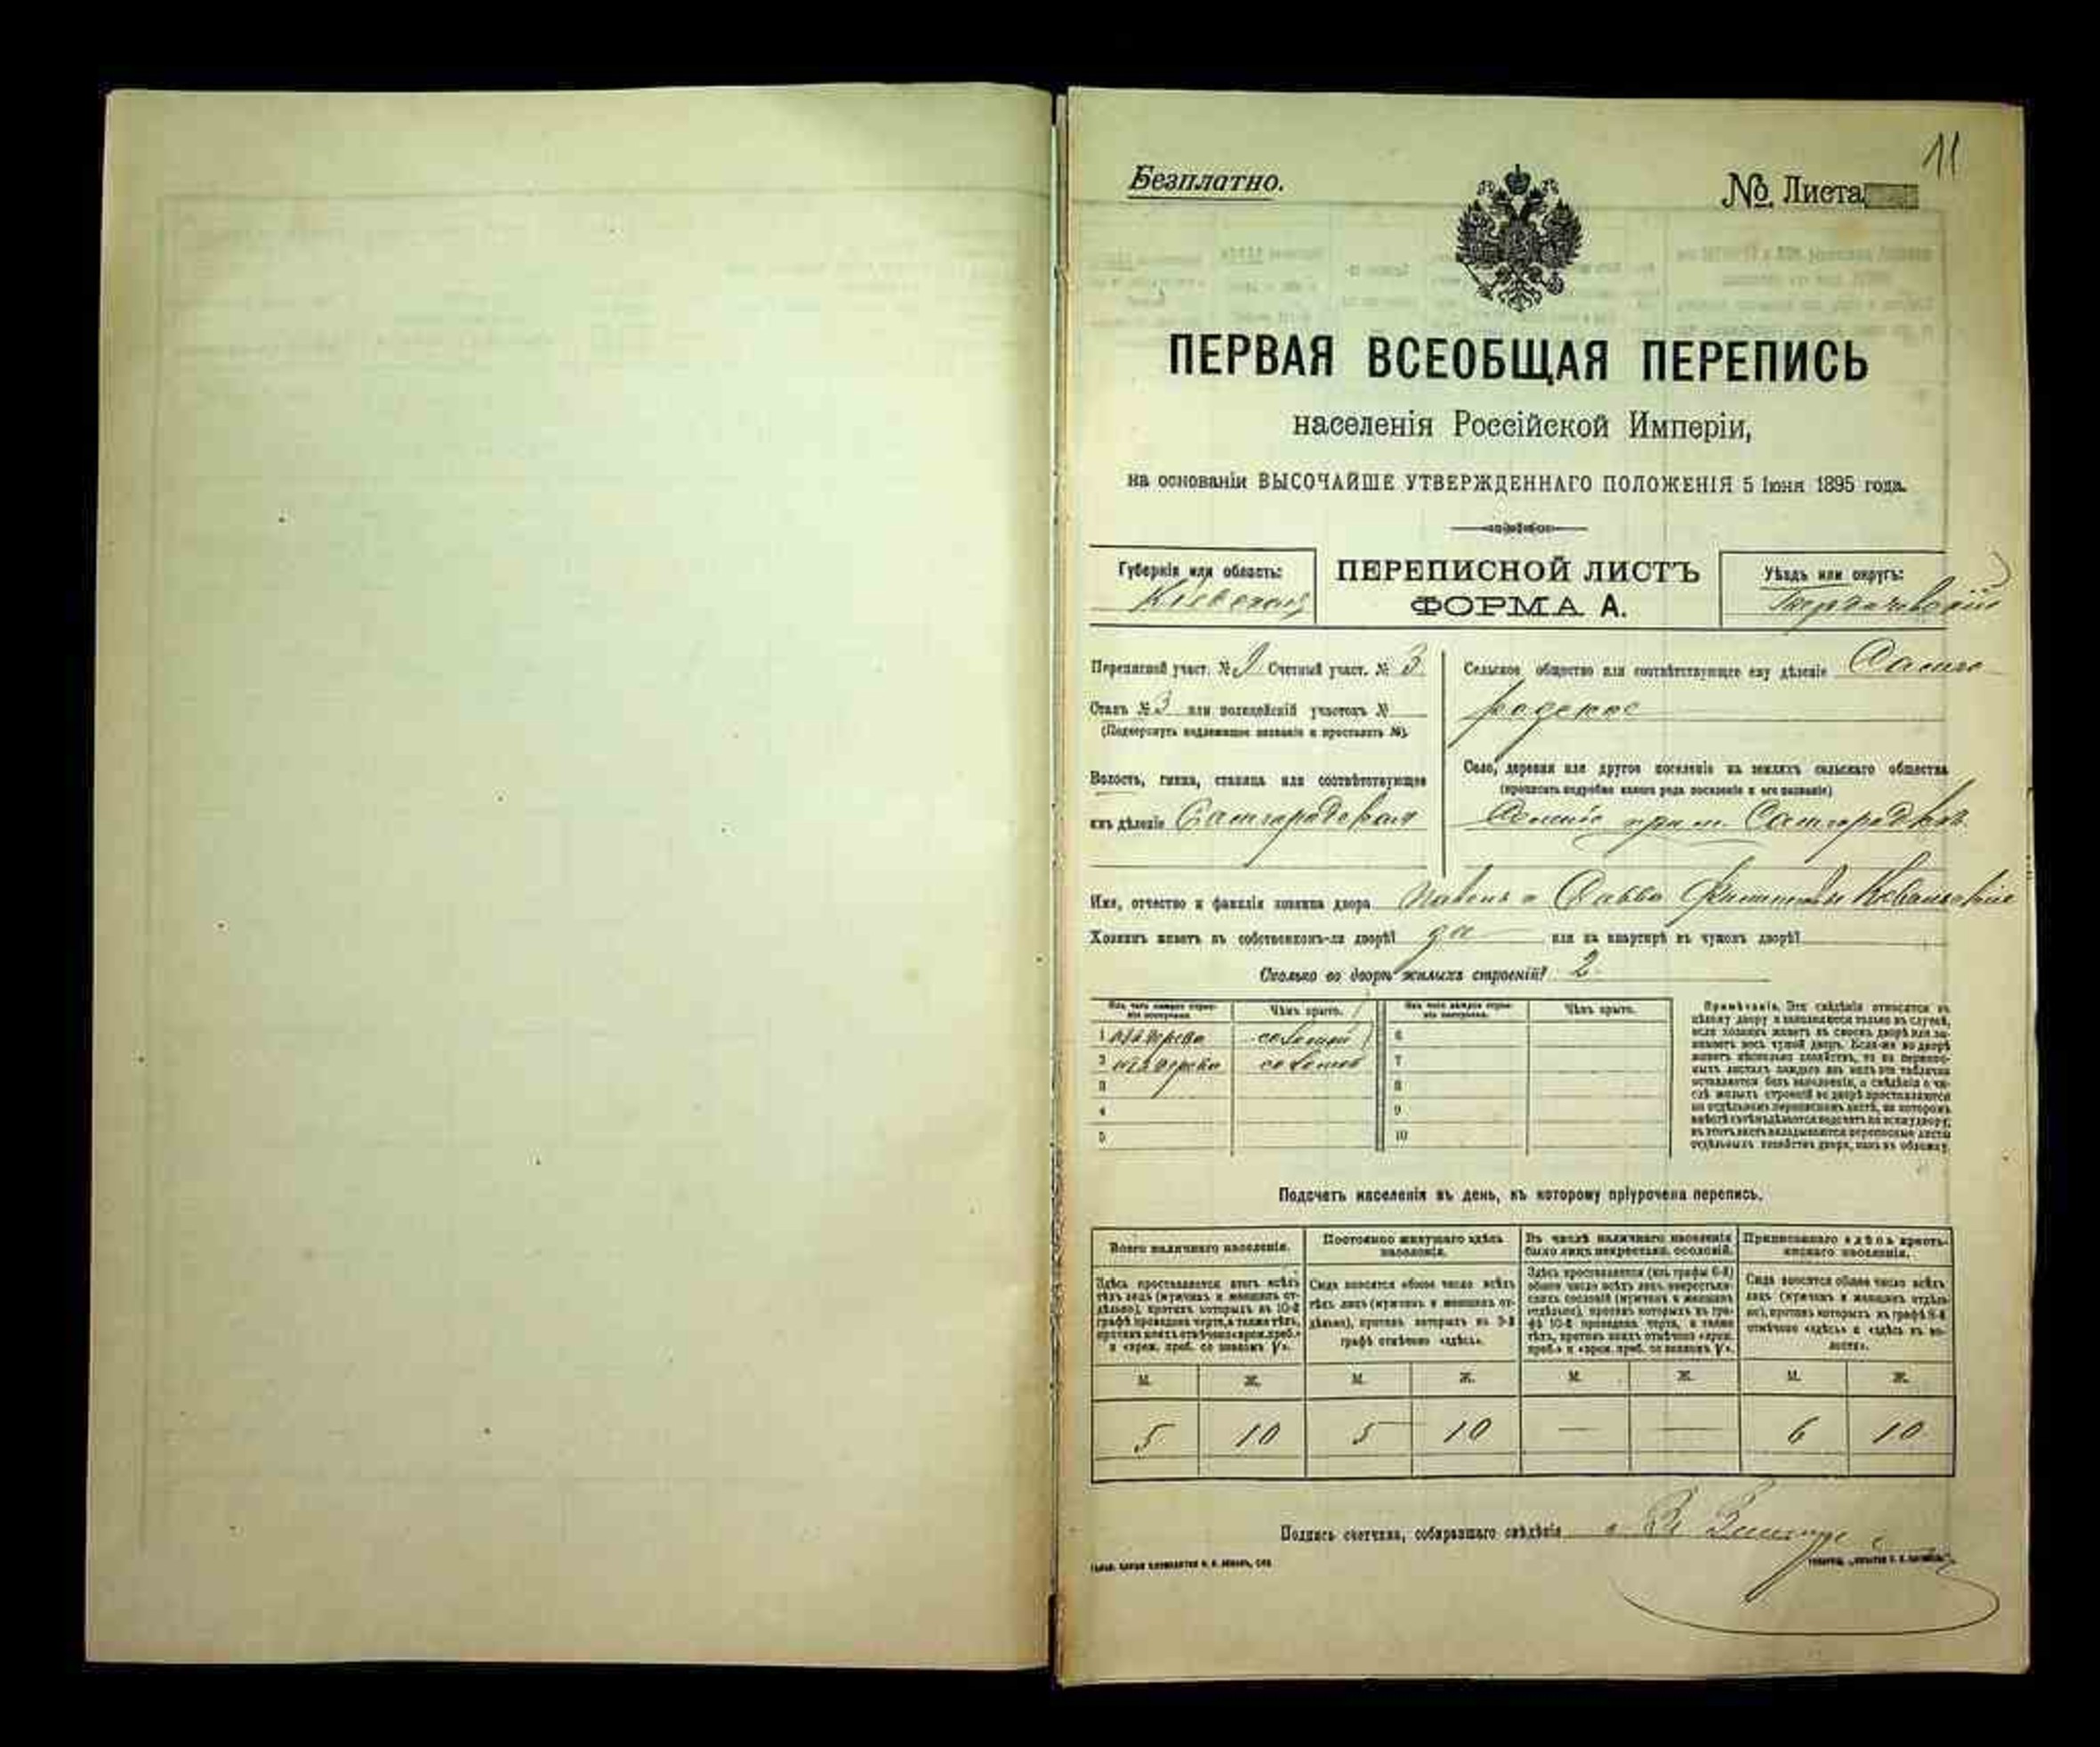 11
Безплатно.
№ Листа
ПЕРВАЯ ВСЕОБЩАЯ ПЕРЕПИСЬ
населенія Россійской Имперіи,
на основаніи ВЫСОЧАЙШЕ УТВЕРЖДЕННАГО ПОЛОЖЕНІЯ 5 Іюня 1895 года.
Губернія или область:
Кіевская
ПЕРЕПИСНОЙ ЛИСТЪ
ФОРМА А.
Уѣздъ или округъ:
Бердичевскій
Переписной участ. № Счетный участ. № 3
Станъ № 3 или полицейскій участокъ №
(Подчеркнуть надлежащее названіе и проставить №).
Волость, гмина, станица или соотвѣтствующее
имъ дѣленіе Самгородская
Сельское общество или соотвѣтствующее ему дѣленіе Самго
родское
Село, деревня или другое поселеніе на земляхъ сельскаго общества
(прописать подробно какого рода поселеніе и его названіе)
Самгородкѣ
Имя, отчество и фамилія хозяина двора Павелъ и Савва Ковальскіе
Хозяинъ живетъ въ собственномъ-ли дворѣ? да или на квартирѣ въ чужомъ дворѣ?
Сколько во дворѣ жилыхъ строеній? 2
Изъ чего каждое строе-
ніе построено.
Чѣмъ крыто.
Изъ чего каждое строе-
ніе построено.
Чѣмъ крыто.
1 изъ дерева соломой 6
2 изъ дерева соломой 7
3 8
4 9
5 10
Примѣчаніе. Эти свѣдѣнія относятся къ
цѣлому двору и заполняются только въ случаѣ,
если хозяинъ живетъ въ своемъ дворѣ или за-
нимаетъ весь чужой дворъ. Если-же во дворѣ
живетъ нѣсколько хозяйствъ, то на перепис-
ныхъ листахъ каждаго изъ нихъ эта табличка
оставляется безъ заполненія, а свѣдѣнія о чи-
слѣ жилыхъ строеній во дворѣ проставляются
на отдѣльномъ переписномъ листѣ, на которомъ
вмѣстѣ съ тѣмъ дѣлается подсчетъ по всему двору;
въ этотъ листъ вкладываются переписные листы
отдѣльныхъ хозяйствъ двора, какъ въ обложку.
Подсчетъ населенія въ день, къ которому пріурочена перепись.
Всего наличнаго населенія.
Здѣсь проставляется итогъ всѣхъ
тѣхъ лицъ (мужчинъ и женщинъ от-
дѣльно), противъ которыхъ въ 10-й
графѣ проведена черта, а также тѣхъ,
противъ коихъ отмѣчено «врем. преб.»
и «врем. преб. со знакомъ V».
Постоянно живущаго здѣсь
населенія.
Сюда вносится общее число всѣхъ
тѣхъ лицъ (мужчинъ и женщинъ от-
дѣльно), противъ которыхъ въ 9-й
графѣ отмѣчено «здѣсь».
Въ числѣ наличнаго населенія
было лицъ некрестьянск. сословій.
Здѣсь проставляется (изъ графы 6-й)
общее число всѣхъ лицъ некрестьян-
скихъ сословій (мужчинъ и женщинъ
отдѣльно), противъ которыхъ въ гра-
фѣ 10-й проведена черта, а также
тѣхъ, противъ коихъ отмѣчено «врем.
преб.» и «врем. преб. со знакомъ V».
Приписаннаго здѣсь кресть-
янскаго населенія.
Сюда вносится общее число всѣхъ
лицъ (мужчинъ и женщинъ отдѣль-
но), противъ которыхъ въ графѣ 8-й
отмѣчено «здѣсь» и «здѣсь въ во-
лости».
М. Ж. М. Ж. М. Ж. М. Ж.
5 10 5 10 — — 6 10
Подпись счетчика, собиравшаго свѣдѣнія